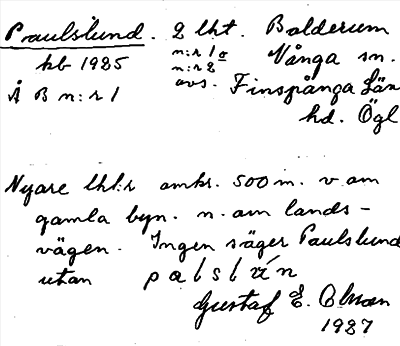 Paulslund. 2 lht. Balderum
hb 1925 n:r 1 o Vånga sn.
n:r 2
Å B n:r 1 avs. Finspånga Län
hd. Ögl
Nyare lht:r omkr. 500 m. v om
gamla byn. n. om lands-
vägen. Ingen säger Paulslund
utan palsl
Gustaf E. Olsson
1927